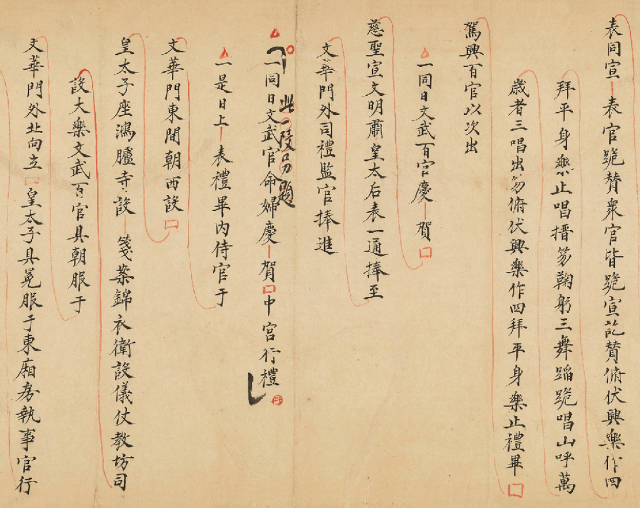 表同宣表官跪贊衆官皆跪宣訖贊俯伏興樂作四
拜平身樂止唱搢笏鞠躬三舞蹈跪唱山呼萬
歲者三唱出笏俯伏興樂作四拜平身樂止禮畢
駕興百官以次出
一同日文武百官慶賀
慈聖宣文明肅皇太后表一通捧至
文華門外司禮監官捧進
此段另題
一同日文武官命婦慶賀中宮行禮
一是日上表禮畢內侍官于
文華門東間朝西設
皇太子座鴻臚寺設箋案錦衣衛設儀仗教坊司
設大樂文武百官具朝服于
文華門外北向立皇太子具冕服于東廂房執事官行